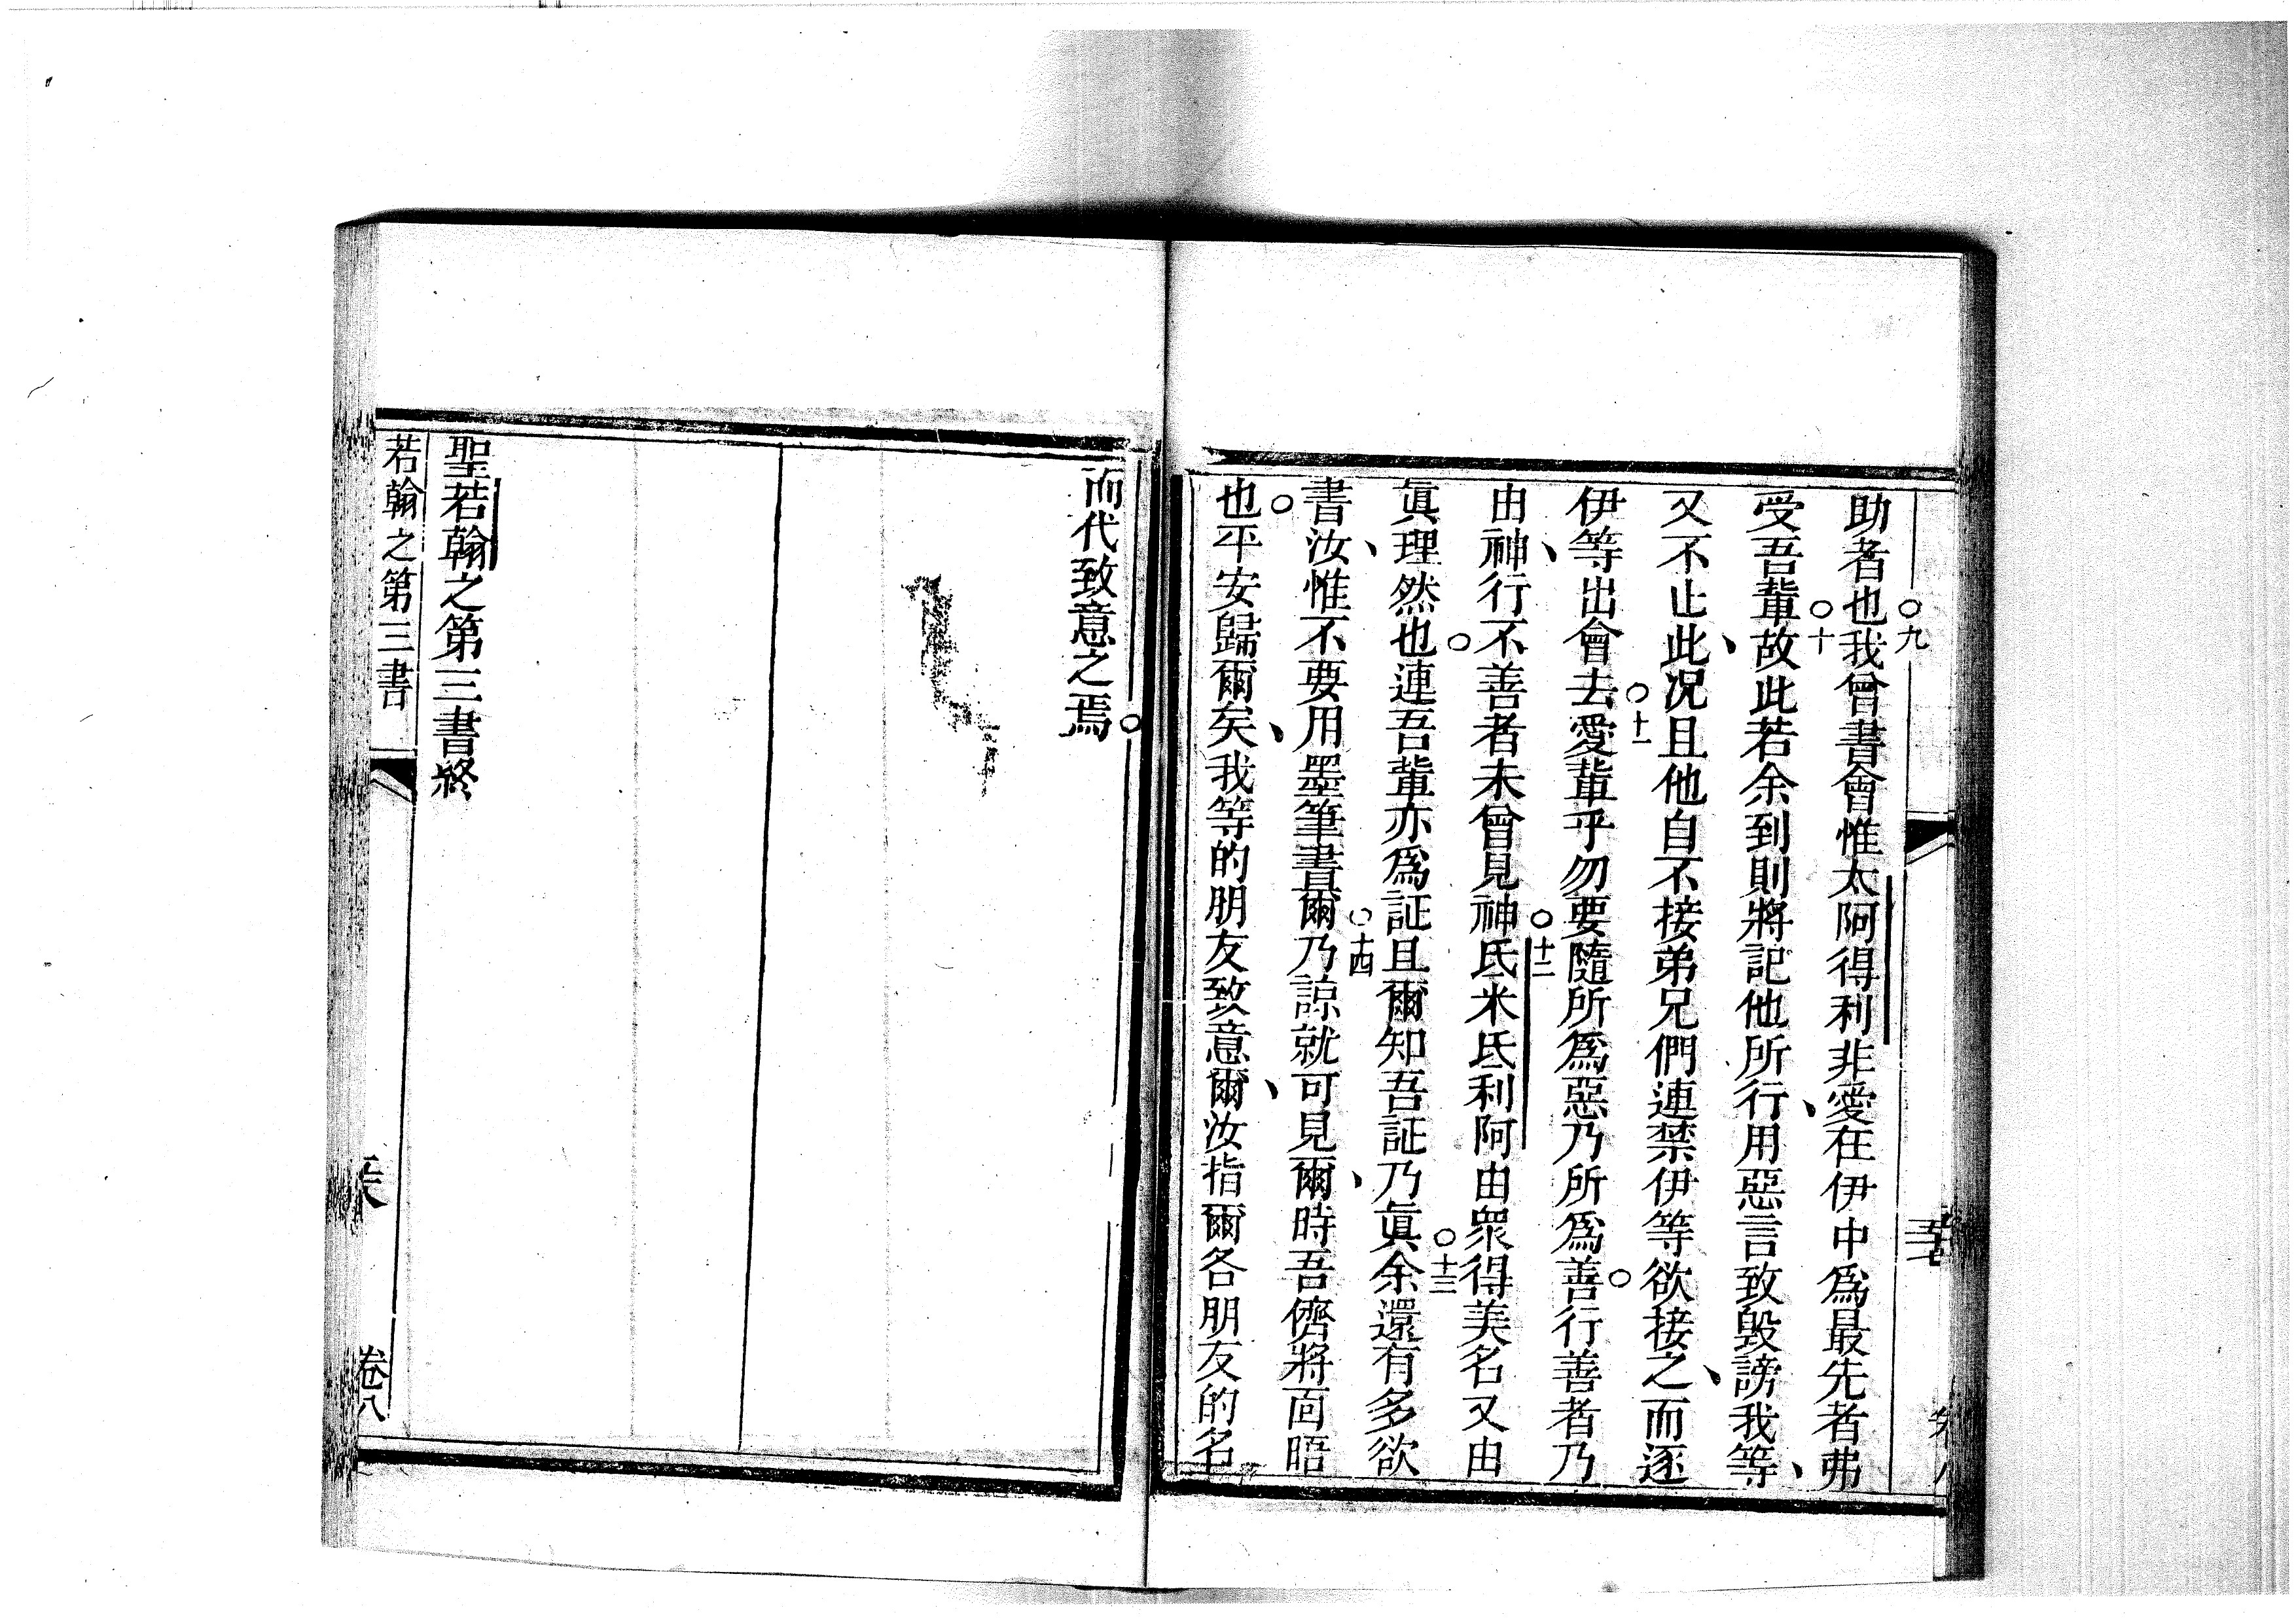 助者也○九我曾書會惟太阿得利非愛在伊中爲最先者弗
受吾輩○十故此若余到則將記他所行、用惡言致毀謗我等、
又不止此、况且他自不接弟兄們連禁伊等欲接之、而逐
伊等出會去○十一愛輩乎勿要隨所爲惡乃所爲善○行善者乃
由神、行不善者未曾見神○十二氐米氐利阿由眾得美名又由
眞理然也○連吾輩亦爲証且爾知吾証乃眞○十三余還有多欲
書汝、惟不要用墨筆書爾○十四乃諒就可見爾、時吾儕將面晤
也○平安歸爾矣、我等的朋友致意爾、汝指爾各朋友的名
而代致意之焉○
聖若翰之第三書終
若翰之第三書
卷八